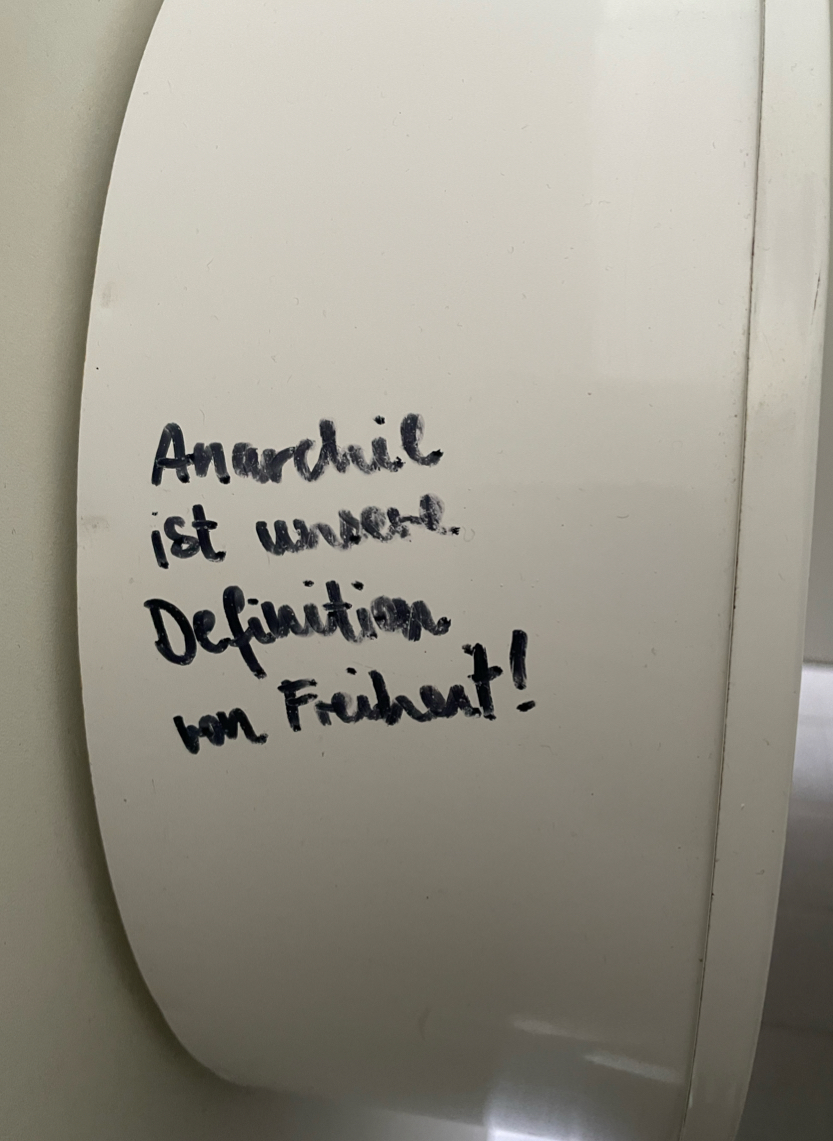 Anarchie
ist unsere
Definition
von Freiheit!